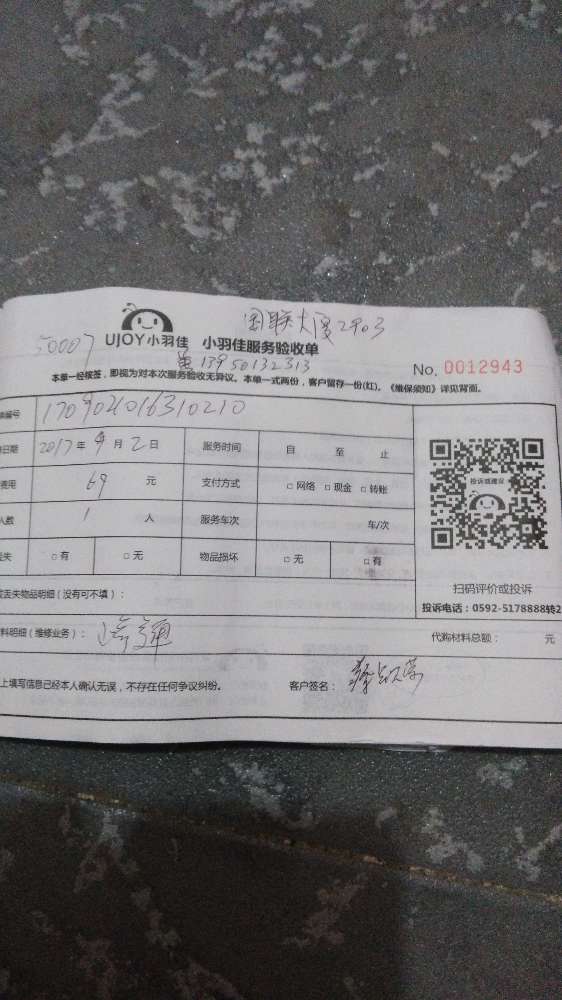 国联大厦2903
50007 UJOY小羽佳 小羽佳服务验收单
13950132313 No. 0012943
本单一经核签，即视为对本次服务验收无异议。本单一式两份，客户留存一份(红)。《维保须知》详见背面。
编号 170902016310210
日期 2017年9月2日 服务时间 自 至 止
费用 69 元 支付方式 □ 网络 □ 现金 □ 转账
人数 1 人 服务车次 车/次
丢失 □ 有 □ 无 物品损坏 □ 无 □ 有
投诉或建议
扫码评价或投诉
投诉电话：0592-5178888转2
丢失物品明细（没有可不填）：
料明细（维修业务）： 代购材料总额： 元
上填写信息已经本人确认无误，不存在任何争议纠纷。 客户签名：